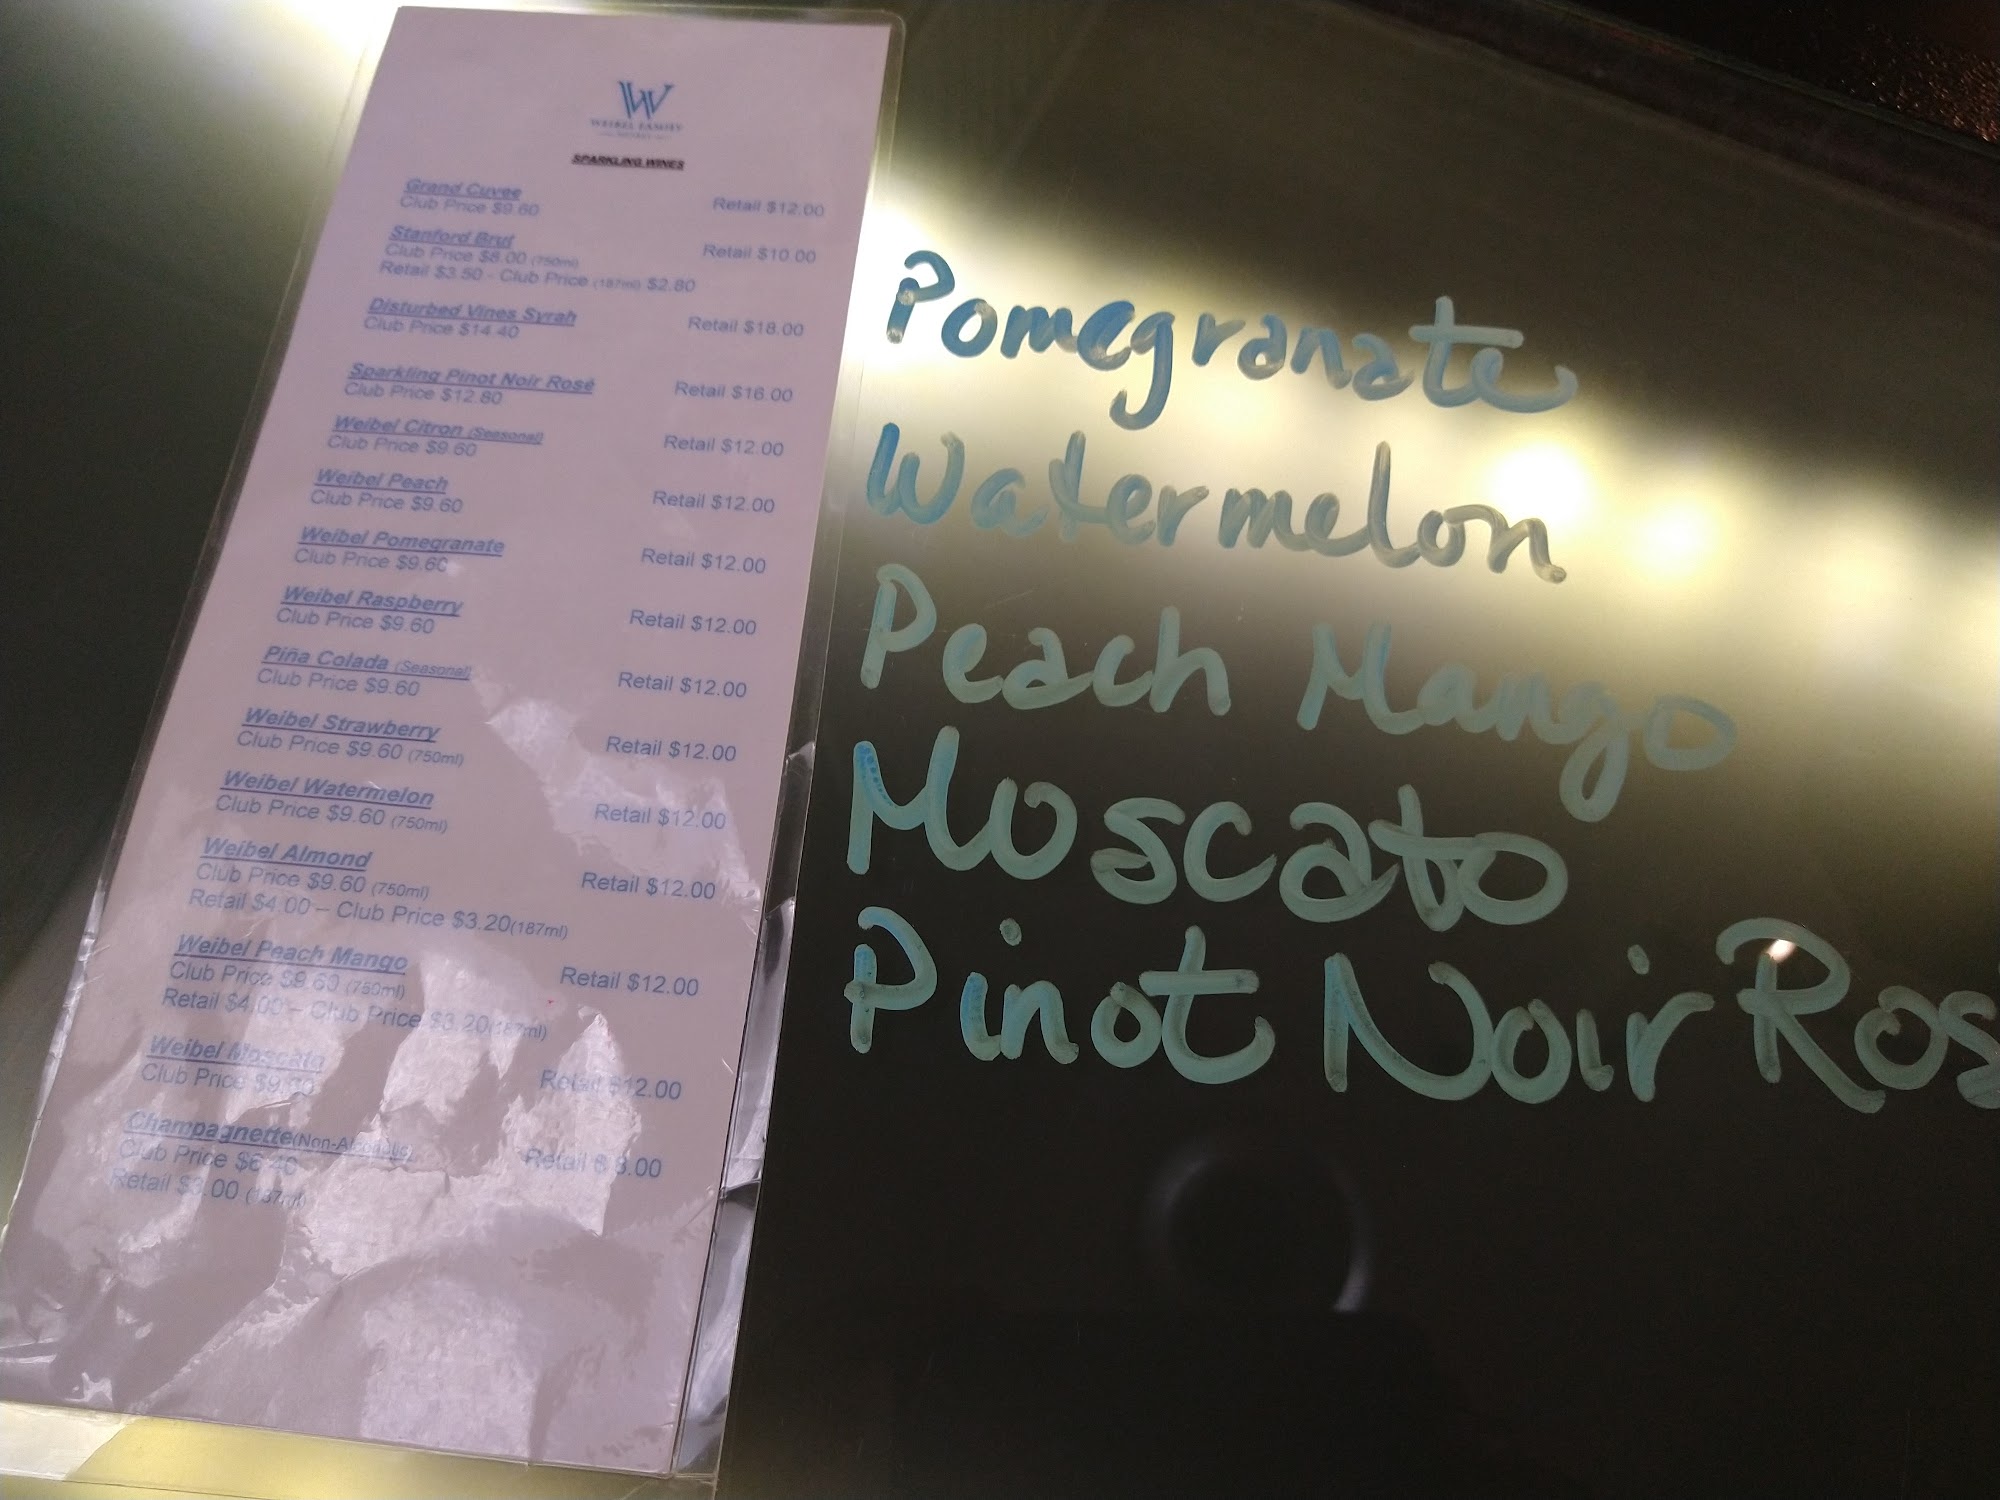 W
WEIBEL FAMILY
SPARKLING WINES
Grand Cuvee
Club Price $9.60 Retail $12.00
Stanford Brut
Club Price $8.00 (750ml) Retail $10.00
Retail $3.50 - Club Price (187ml) $2.80
Disturbed Vines Syrah
Club Price $14.40 Retail $18.00
Sparkling Pinot Noir Rosé
Club Price $12.80 Retail $16.00
Weibel Citron (Seasonal)
Club Price $9.60 Retail $12.00
Weibel Peach
Club Price $9.60 Retail $12.00
Weibel Pomegranate
Club Price $9.60 Retail $12.00
Weibel Raspberry
Club Price $9.60 Retail $12.00
Piña Colada (Seasonal)
Club Price $9.60 Retail $12.00
Weibel Strawberry
Club Price $9.60 (750ml) Retail $12.00
Weibel Watermelon
Club Price $9.60 (750ml) Retail $12.00
Weibel Almond
Club Price $9.60 (750ml) Retail $12.00
Retail $4.00 – Club Price $3.20(187ml)
Weibel Peach Mango
Club Price $9.60 (750ml) Retail $12.00
Retail $4.00 – Club Price $3.20(187ml)
Weibel Moscato
Club Price $9.60 Retail $12.00
Champagnette(Non-Alcoholic)
Club Price $6.40 Retail $ 8.00
Retail $3.00 (187ml)
Pomegranate
Watermelon
Peach Mango
Moscato
Pinot Noir Ros